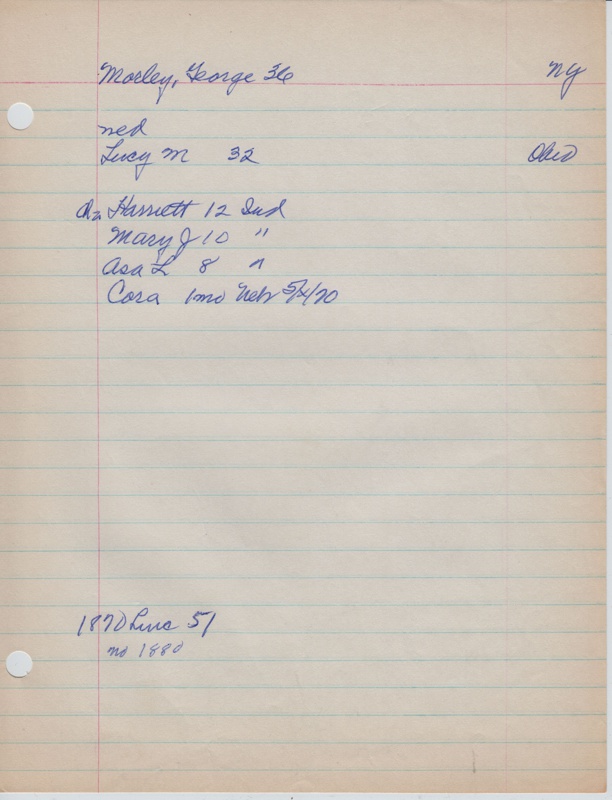 Morley, George 36 NY
med
Lucy M 32 Ohio
Ch = Harriett 12 Ind
Mary J 10 "
Asa L 8 "
Cora 1mo Neb 5/x/70
1870 Linc 51
no 1880